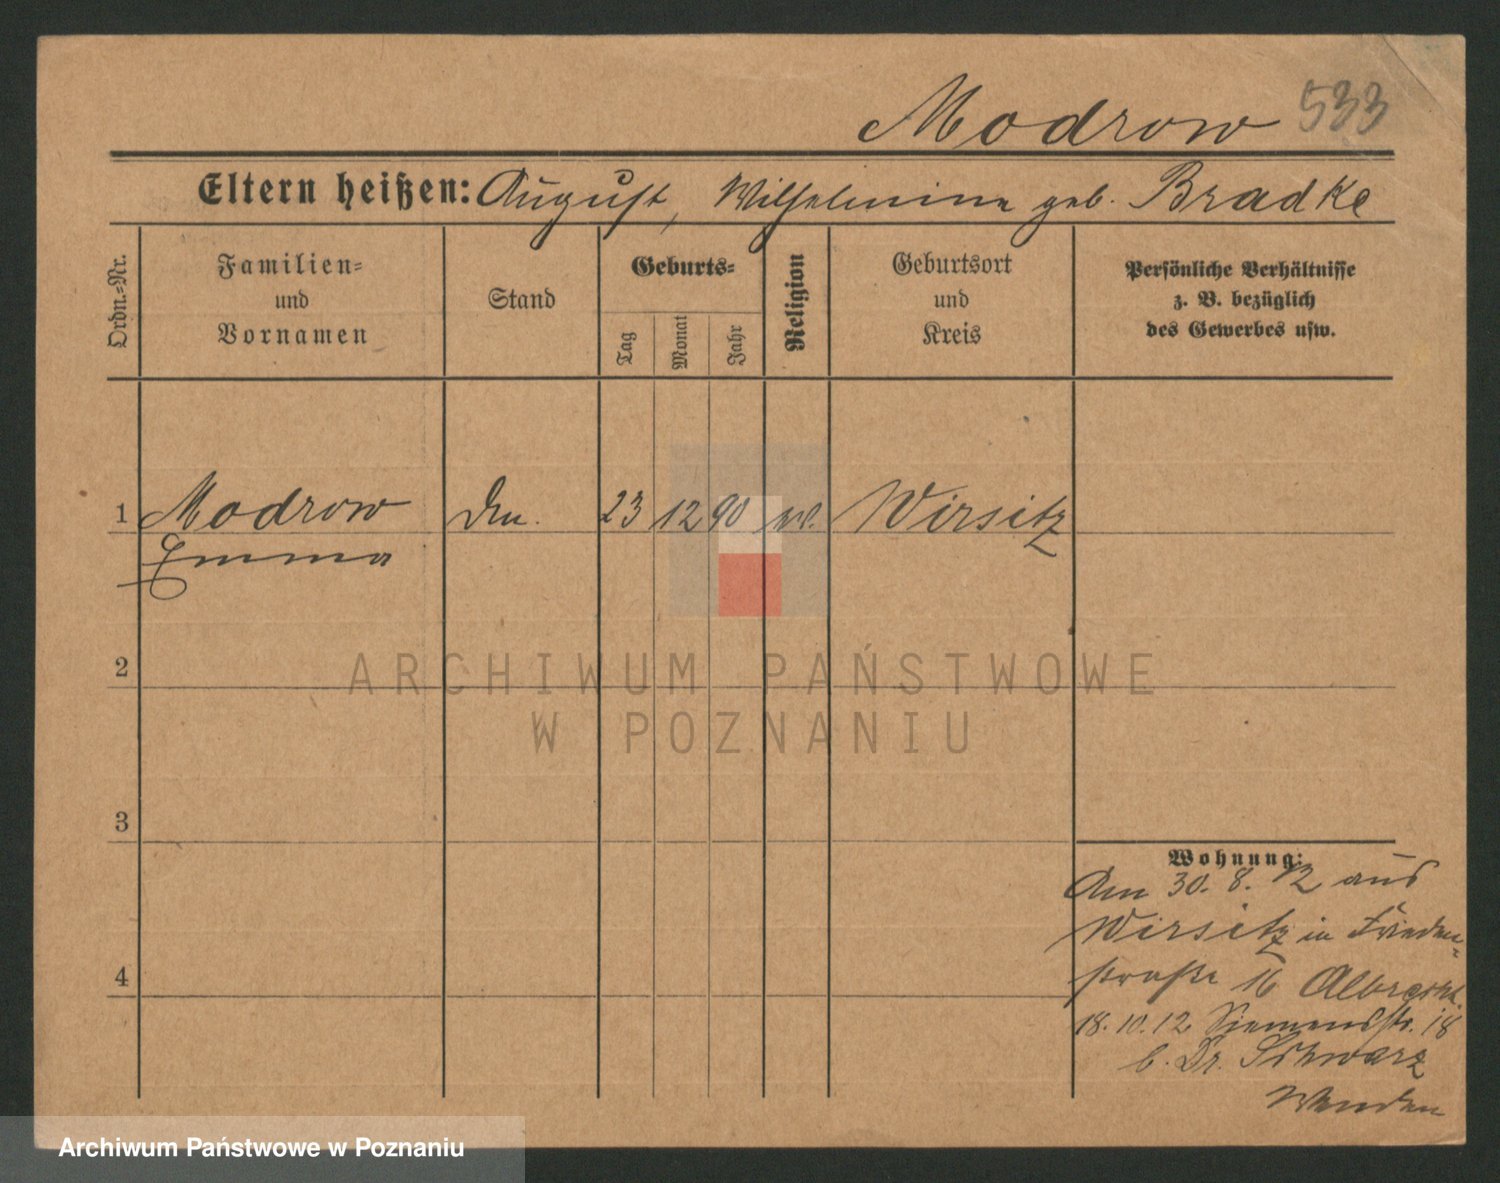 Modrow 533
Eltern heißen: August, Wilhelmine geb. Bradke
Ordn.=Nr.
Familien=
und
Vornamen
Stand
Geburts=
Tag
Monat
Jahr
Religion
Geburtsort
und
Kreis
Persönliche Verhältnisse
z. B. bezüglich
des Gewerbes usw.
1 Modrow 23 12 90 Wirsitz
Emma
2
3
4
Wohnung:
Am 30. 8. 12 aus
Wirsitz in Frieden-
straße 16 Albrecht.
18. 10. 12 Siemensstr. 18
b. Dr. Schwarz
Wenden
ARCHIWUM PAŃSTWOWE
W POZNANIU
Archiwum Państwowe w Poznaniu